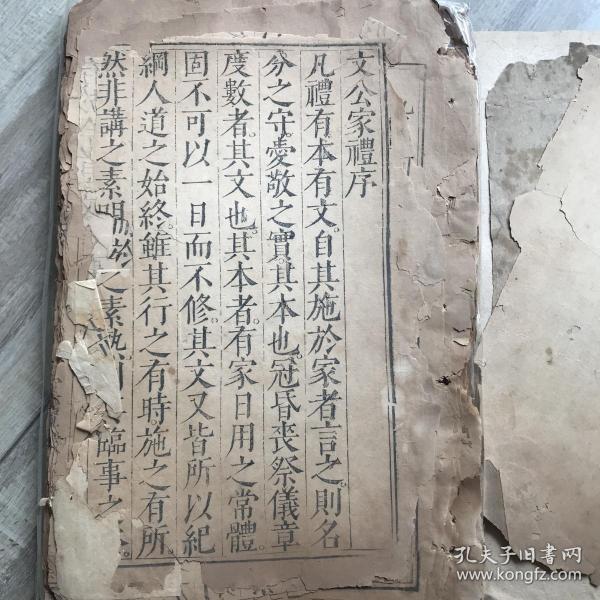 文公家禮序
凡禮有本有文。自其施於家者言之。則名
分之守。愛敬之實。其本也。冠昏喪祭儀章
度數者。其文也。其本者。有家日用之常體。
固不可以一日而不修。其文又皆所以紀
綱人道之始終。雖其行之有時。施之有所。
然非講之素明
之素熟
臨事之
孔夫子旧书网
www.kongfz.com